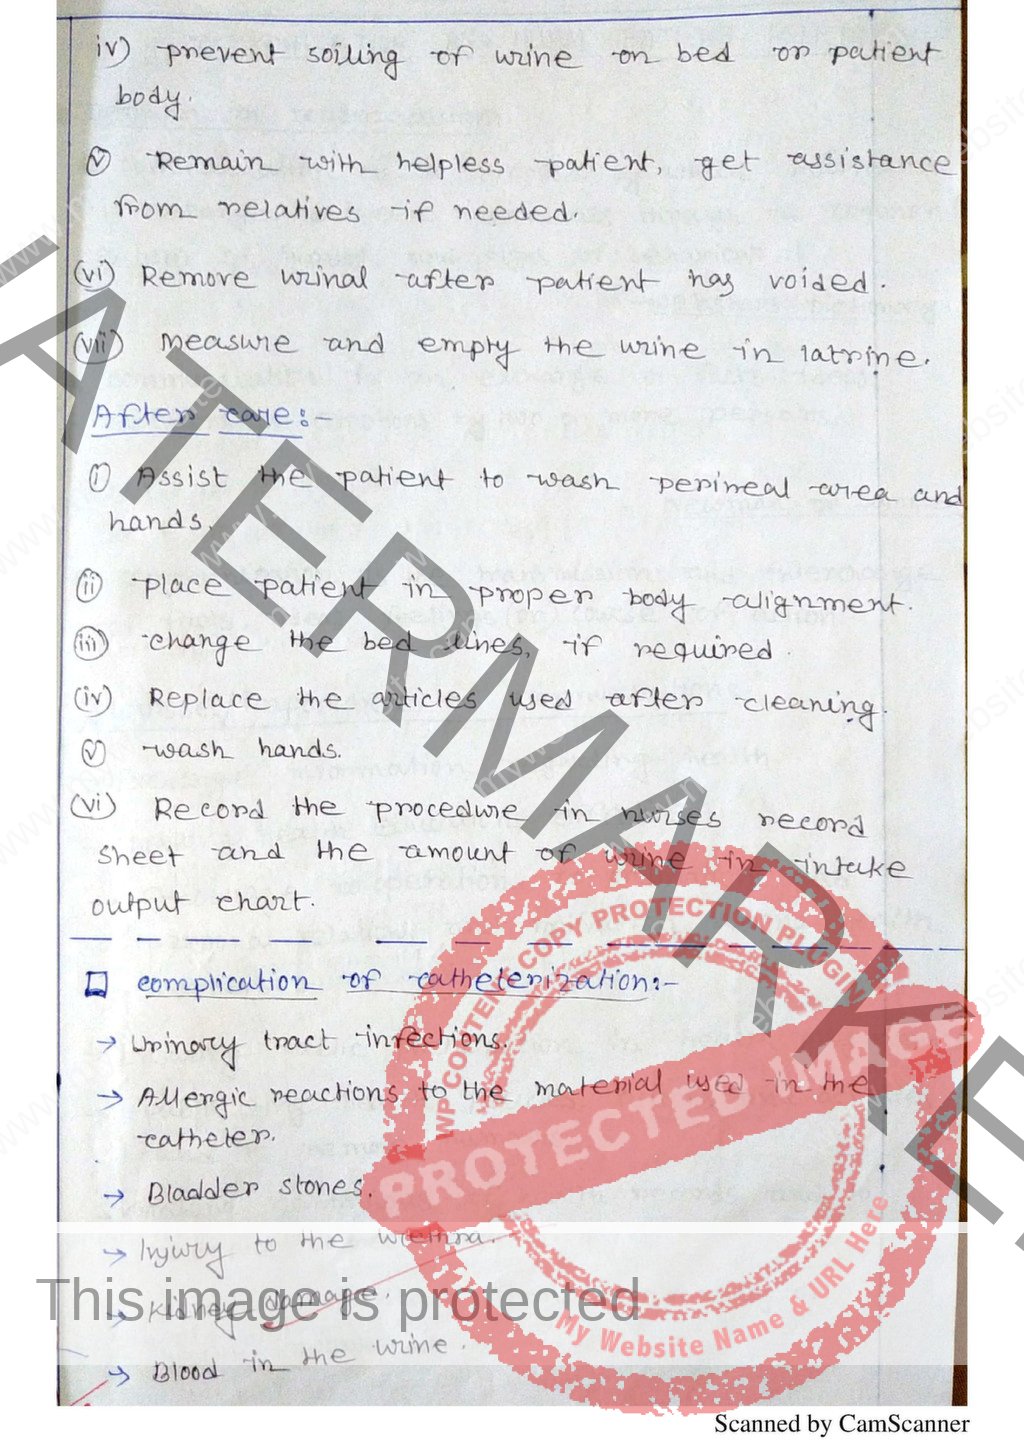 iv) prevent soiling of urine on bed or patient
body.
v Remain with helpless patient, get assistance
from relatives if needed.
(vi) Remove urinal after patient has voided.
(vii) measure and empty the urine in latrine.
After care:-
i Assist the patient to wash perineal area and
hands.
ii place patient in proper body alignment.
iii change the bed lines, if required.
(iv) Replace the articles used after cleaning.
v wash hands.
(vi) Record the procedure in nurses record
sheet and the amount of urine in intake
output chart.
complication of catheterization:-
→ Urinary tract infections.
→ Allergic reactions to the material used in the
catheter.
→ Bladder stones.
→ Injury to the urethra.
→ Kidney damage.
→ Blood in the urine.
WATERMARKED
WP CONTENT COPY PROTECTION PLUGIN
PROTECTED IMAGE
My Website Name & URL Here
This image is protected
Scanned by CamScanner